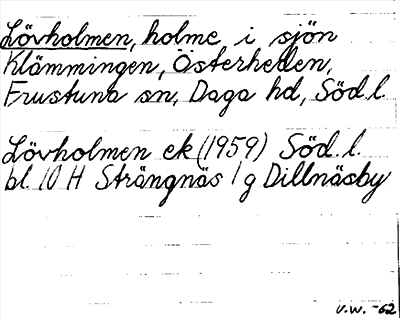 Lövholmen, holme i sjön
Klämmingen, Österheden,
Frustuna sn, Daga hd, Söd.l.
Lövholmen ek (1959) Söd.l.
bl. 10 H Strängnäs 1 g Dillnäsby
V.W. -62